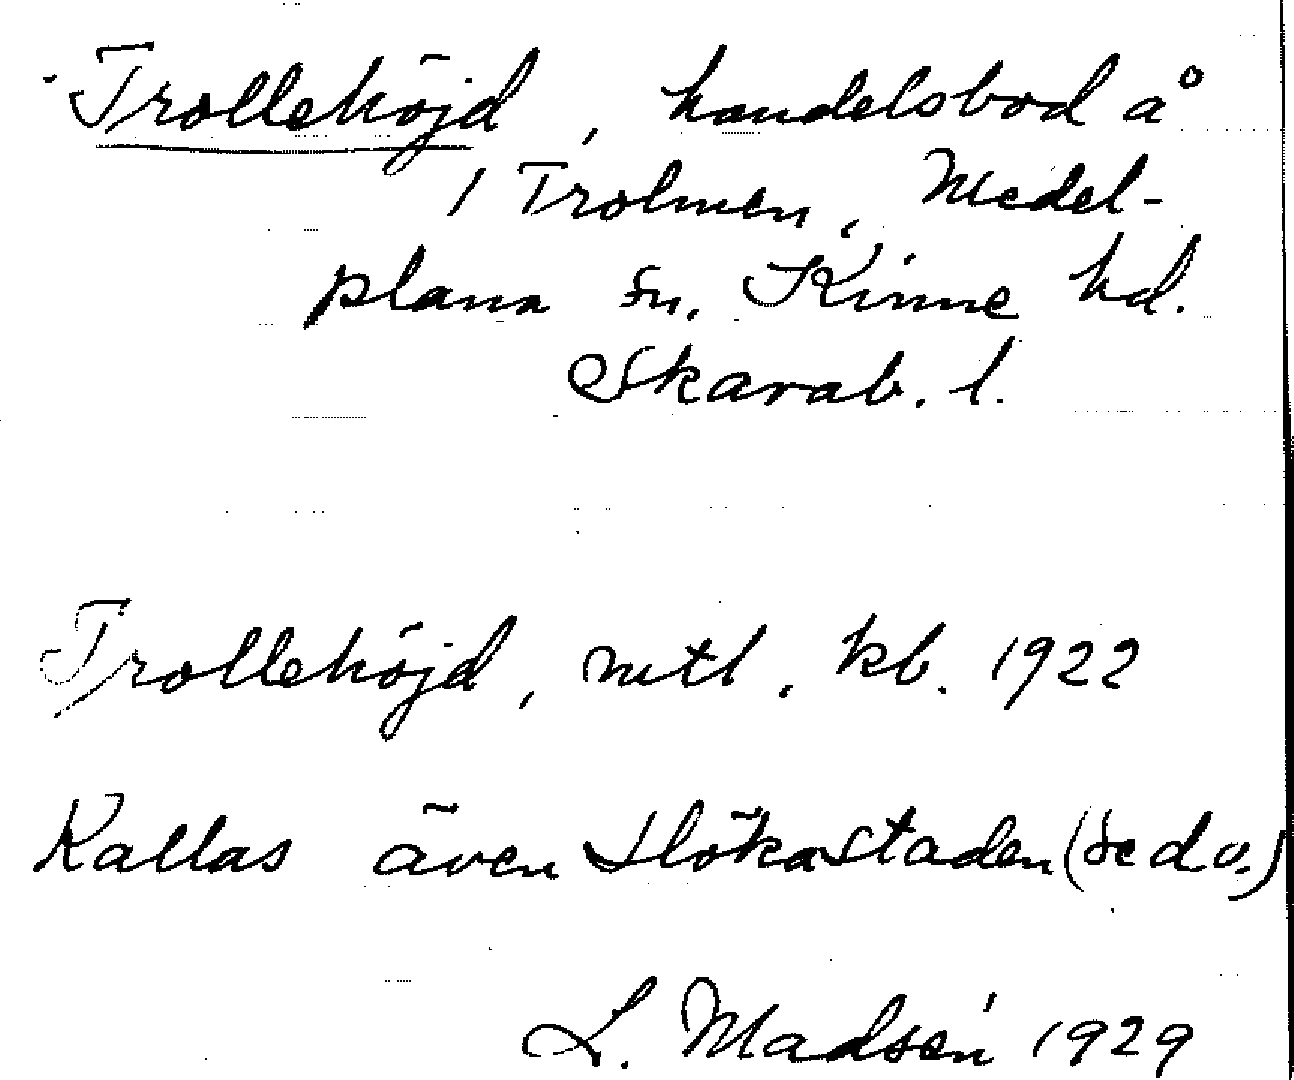 Trollehöjd, handelsbod å
1 Trolmen, Medel-
plana sn, Kinne hd.
Skarab. l.
Trollehöjd, mtl. kb. 1922
Kallas även Slökastaden (se d o.)
L. Madsén 1929